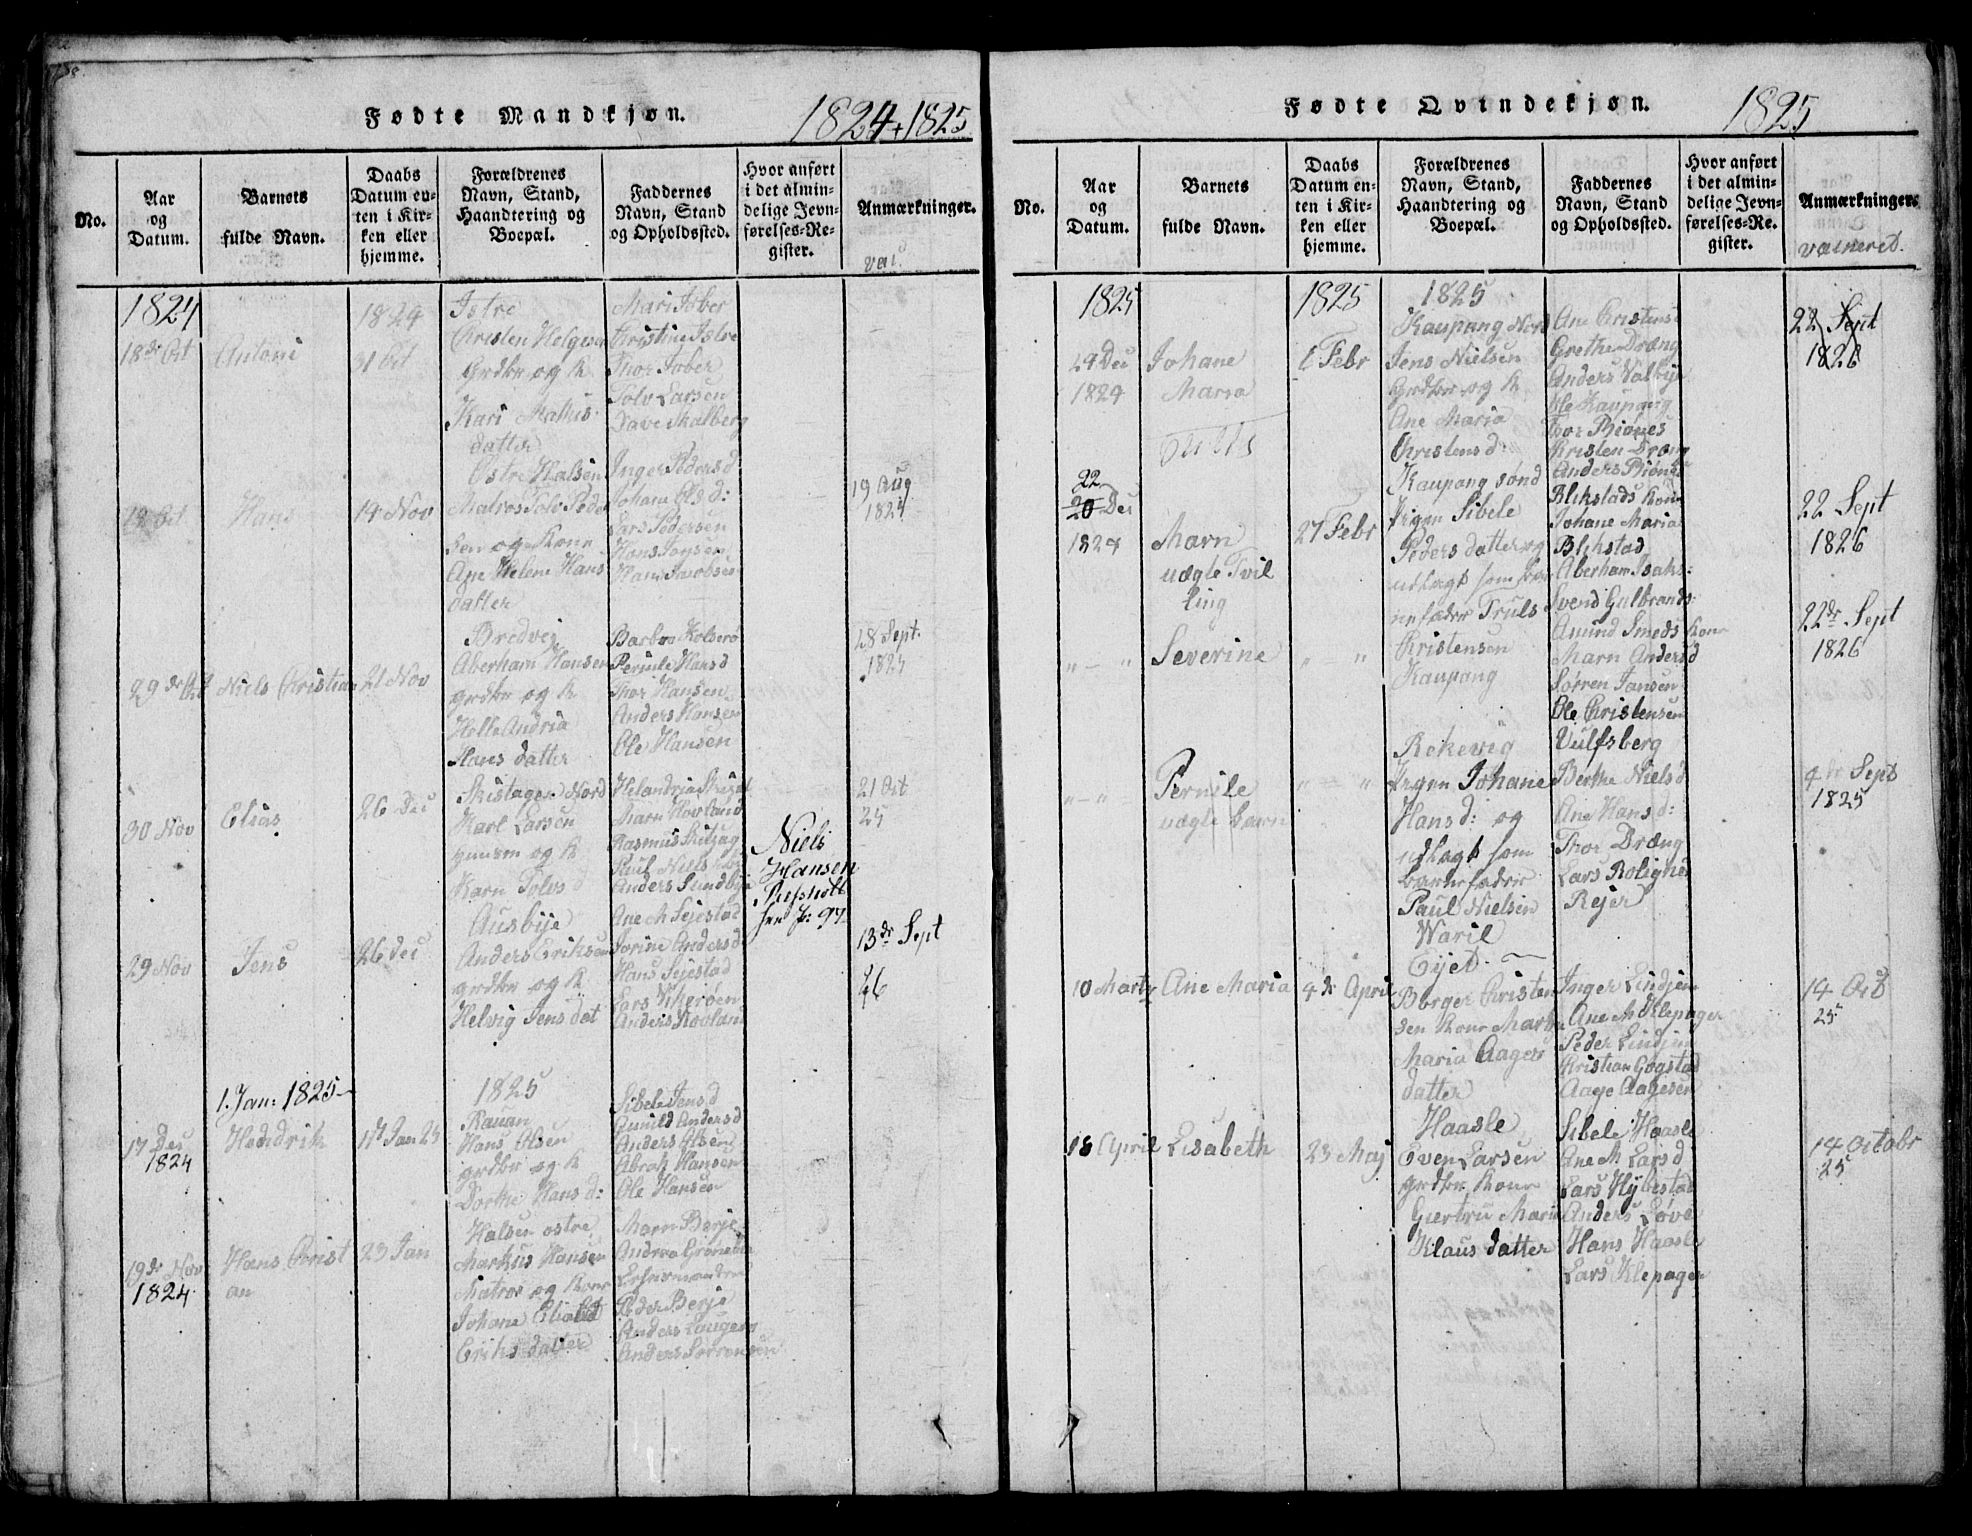 Fødte Mandkjøn.
1824+1825
No.
Aar
og
Datum.
Barnets
fulde Navn.
Daabs
Datum en-
ten i Kir-
ken eller
hjemme.
Forældrenes
Navn, Stand,
Haandtering og
Boepæl.
Faddernes
Navn, Stand
og Opholdssted.
Hvor anført
i det almin-
delige Jevn-
førelses-Re-
gister.
Anmærkninger.
1824
18de Oct
Antoni
1824
31 Oct
Istre
Christen Helgesen
Grdbr og K
Kari Mathis
datter
Mari Jober
Christine Istre
Thor Jober
Tolv Larsen
Dave Skalberg
Hans
14 Nov
Østre Halsen
Matros Tolv Peder
sen og Kone
Ane Helene Hans
datter
Inger Pedersd
Johane Olsd:
Lars Pedersen
Hans
Hans Jacobsen
19 Aug
1825
29de Oct
Niels Christian
21 Nov
Bredvej
Aberham Hansen
grdbr og K
Helle Andria
Hans datter
Barbro Kolserø
Pernile Hansd
Thor Hansen
Anders Hansen
Ole Hansen
28 Sept.
1825
30 Nov
Elias
26 Dec
Skistager Nord
Karl Larsen
og K
Karn Tolvsd
Helandria
Marn Hovland
Rasmus
Paul Niels
Anders Sundbye
Niels
Hansen
21 Oct
25
29 Nov
Jens
26 Dec
Ausbye
Anders Eriksen
grdbr og K
Helvig Jensdat
Ane M Sejestad
Jorine Andersd
Hans Sejestad
Lars Vikerøen
Anders Hovland
13de Sept
26
1. Jan: 1825
17 Dec
1824
Hendrik
17 Jan 25
1825
Rauan
Hans Olsen
grdbr og K
Dorthe Hansd:
Sibele Jensd
Gunild Andersd
Anders Olsen
Abrah Hansen
Ole Hansen
19de Nov
1824
Hans Christ
an
23 Jan
Halsen østre
Markus Hansen
Matros og Kone
Johane Elisabet
Eriks datter
Marn Berje
Peder Berje
Anders
Anders Sørrensen
Fødte Qvindekjøn.
1825
No.
Aar
og
Datum.
Barnets
fulde Navn.
Daabs
Datum en-
ten i Kir-
ken eller
hjemme.
Forældrenes
Navn, Stand,
Haandtering og
Boepæl.
Faddernes
Navn, Stand
og Opholdssted.
Hvor anført
i det almin-
delige Jevn-
førelses-Re-
gister.
Anmærkninger.
1825
29 Dec
1824
Johane
Maria
1825
6 Febr
1825
Kaupang Nord
Jens Nielsen
Grdbr og K
Ane Maria
Christensd:
Ane Christensd
Grethe Dræng
Anders Valbye
Ole Kaupang
Thor Biønes
Christen Dræng
Anders Biønes
22 Sept
1826
22
20 Dec
1824
Marn
uægte Tvil
ling
27 Febr
Kaupang sønd
Pigen Sibele
Peders datter og
udlagt som bar
nefader Truls
Christensen
Kaupang
Blikstads Kone
Johane Maria
Blikstad
Aberham Isaks:
Svend Gulbrands:
22 Sept
1826
" — "
Severine
" "
Amund Smeds Kone
Marn Andersd
Sørren Jansen
Ole Christensen
Vulfsberg
22de Sept
1826
" — "
Pernile
uægte Barn
" = "
Rekevig
Pigen Johane
Hansd: og
udlagt som
barnefader
Paul Nielsen
Waril
Berthe Nielsd
Ane Hansd:
Thor Dræng
Lars Rolighed
Rejer
4de Sept
1825
10 Marty
Ane Maria
4de April
Eijet
Borger Christen
sen Kone Marthe
Maria Aages
datter
Inger Lindjem
Ane M Klepager
Peder Lindjem
Christian Gogstad
Aage Aagesen
14 Oct
25
18 April
Lisabeth
23 Maj
Haasle
Even Larsen
grdbr Kone
Giertru Maria
Klaus datter
Sibele Haasle
Ane M Larsd
Lars Hybestad
Anders Løve
Hans Haasle
Lars Klepager
14 Octobr
25